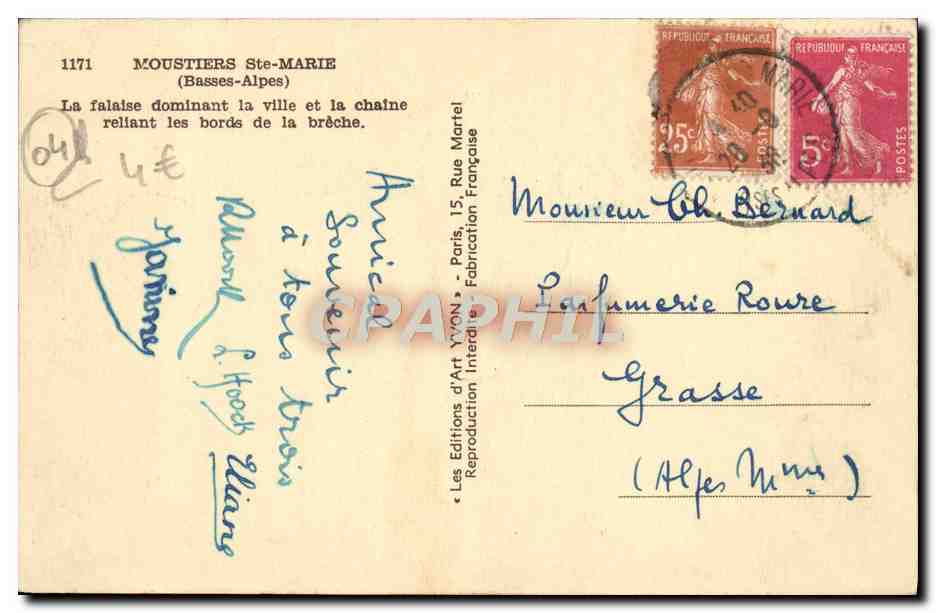 1171 MOUSTIERS Ste-MARIE
(Basses-Alpes)
La falaise dominant la ville et la chaîne
reliant les bords de la brêche.
04
4€
Amical
Souvenir
à tous trois
L. Hoock
Eliane
« Les Editions d'Art YVON » - Paris, 15, Rue Martel
Reproduction Interdite - Fabrication Française
REPUBLIQUE FRANÇAISE
25c
POSTES
REPUBLIQUE FRANÇAISE
5c
POSTES
MARIE
Monsieur Ch. Bernard
Parfumerie Roure
Grasse
(Alpes Mmes)
CPAPHIL